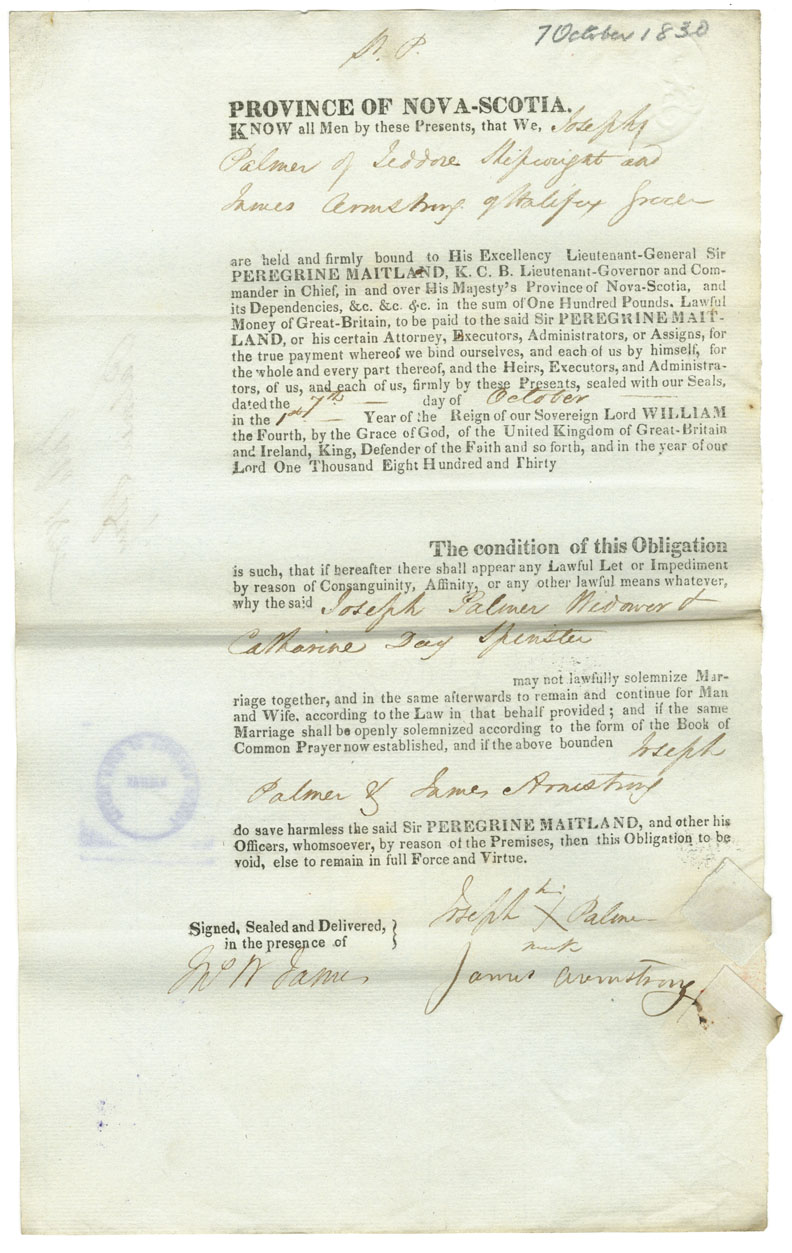 7 October 1830
PROVINCE OF NOVA-SCOTIA.
KNOW all Men by these Presents, that We, Joseph
Palmer of Jeddore Shipwright and
James Armstrong of Halifax Grocer
are held and firmly bound to His Excellency Lieutenant-General Sir
PEREGRINE MAITLAND, K. C. B. Lieutenant-Governor and Com-
mander in Chief, in and over His Majesty's Province of Nova-Scotia, and
its Dependencies, &c. &c. &c. in the sum of One Hundred Pounds, Lawful
Money of Great-Britain, to be paid to the said Sir PEREGRINE MAIT-
LAND, or his certain Attorney, Executors, Administrators, or Assigns, for
the true payment whereof we bind ourselves, and each of us by himself, for
the whole and every part thereof, and the Heirs, Executors, and Administra-
tors, of us, and each of us, firmly by these Presents, sealed with our Seals,
dated the 7th day of October
in the 1st Year of the Reign of our Sovereign Lord WILLIAM
the Fourth, by the Grace of God, of the United Kingdom of Great-Britain
and Ireland, King, Defender of the Faith and so forth, and in the year of our
Lord One Thousand Eight Hundred and Thirty
The condition of this Obligation
is such, that if hereafter there shall appear any Lawful Let or Impediment
by reason of Consanguinity, Affinity, or any other lawful means whatever,
why the said Joseph Palmer Widower &
Catharine Day Spinster
may not lawfully solemnize Mar-
riage together, and in the same afterwards to remain and continue for Man
and Wife, according to the Law in that behalf provided; and if the same
Marriage shall be openly solemnized according to the form of the Book of
Common Prayer now established, and if the above bounden Joseph
Palmer & James Armstrong
do save harmless the said Sir PEREGRINE MAITLAND, and other his
Officers, whomsoever, by reason of the Premises, then this Obligation to be
void, else to remain in full Force and Virtue.
Signed, Sealed and Delivered,
in the presence of
Joseph X Palmer
mark
W James
James Armstrong